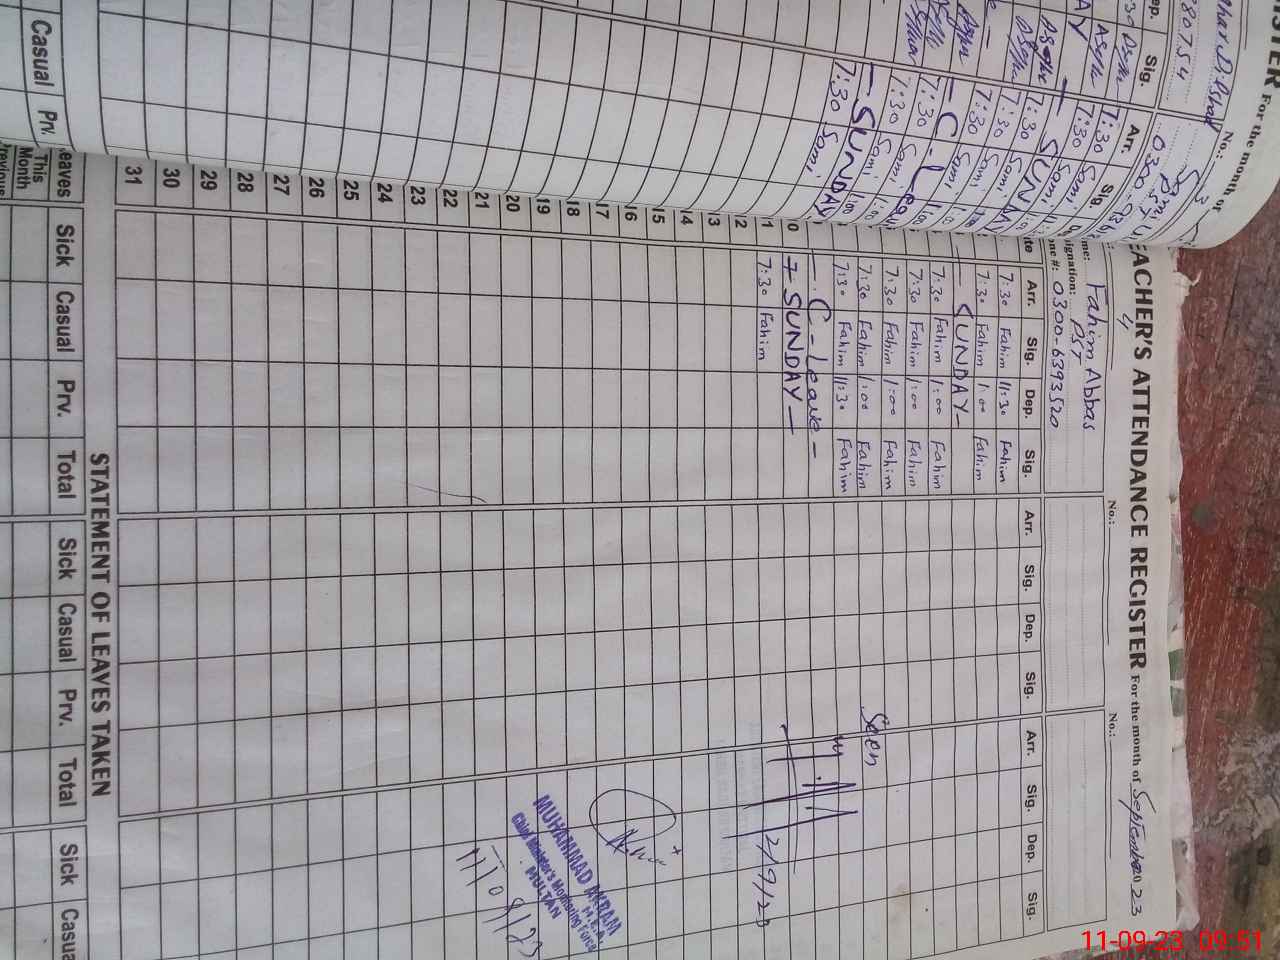 TEACHER'S ATTENDANCE REGISTER For the month of September 2023
No.: 4 No.: No.:
Name: Fahim Abbas
Designation: PST
Phone #: 0300-6393520
Date Arr. Sig. Dep. Sig. Arr. Sig. Dep. Sig. Arr. Sig. Dep. Sig.
7:30 Fahim 11:30 Fahim
7:30 Fahim 1:00 Fahim
— SUNDAY —
7:30 Fahim 1:00 Fahim
7:30 Fahim 1:00 Fahim
7:30 Fahim 1:00 Fahim
7:30 Fahim 1:00 Fahim
7:30 Fahim 11:30 Fahim
— C-Leave —
10 — SUNDAY —
11 7:30 Fahim
12
13
14
15
16
17
18
19
20
21
22
23
24
25
26
27
28
29
30
31
Seen
2/9/23
MUHAMMAD AKRAM
M.E.A.
Chief Minister's Monitoring Force
MULTAN
11/09/23
STATEMENT OF LEAVES TAKEN
Leaves Sick Casual Prv. Total Sick Casual Prv. Total Sick Casual
This Month
Previous
For the month of
No.: 3
Sami
PST
Sig. Arr. Sig.
7:30 Sami
7:30 Sami
— SUNDAY
7:30 Sami
7:30 Sami 1:00
7:30 Sami 1:00
— C-Leave
7:30 Sami 1:00
7:30 Sami 1:00
— SUNDAY
7:30 Sami
Casual Prv.
11-09-23 09:51